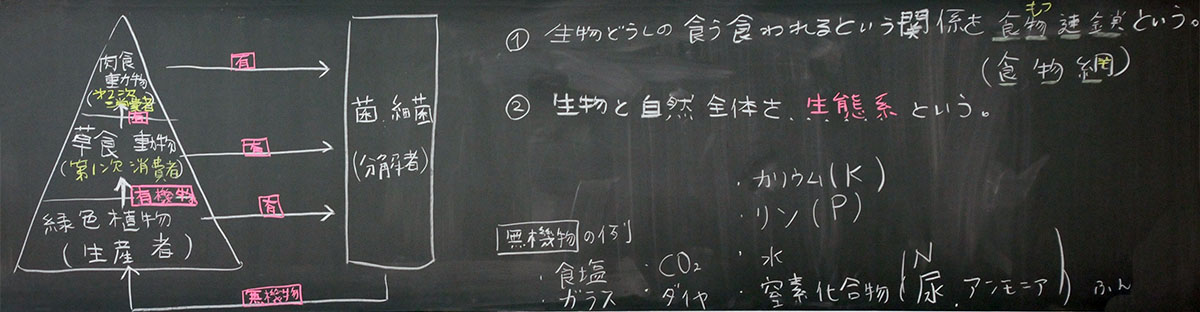 肉食
動物
(第2次
消費者)
有
草食動物
(第1次消費者)
有機物
緑色植物
(生産者)
有
有
有
菌、細菌
(分解者)
無機物
① 生物どうしの食う食われるという関係を食物連鎖という。
もつ
(食物網)
② 生物と自然全体を、生態系という。
・カリウム(K)
・リン(P)
無機物の例
・食塩
・CO₂
・水
・ガラス
・ダイヤ
・窒素化合物(尿、アンモニア)
N
ふん